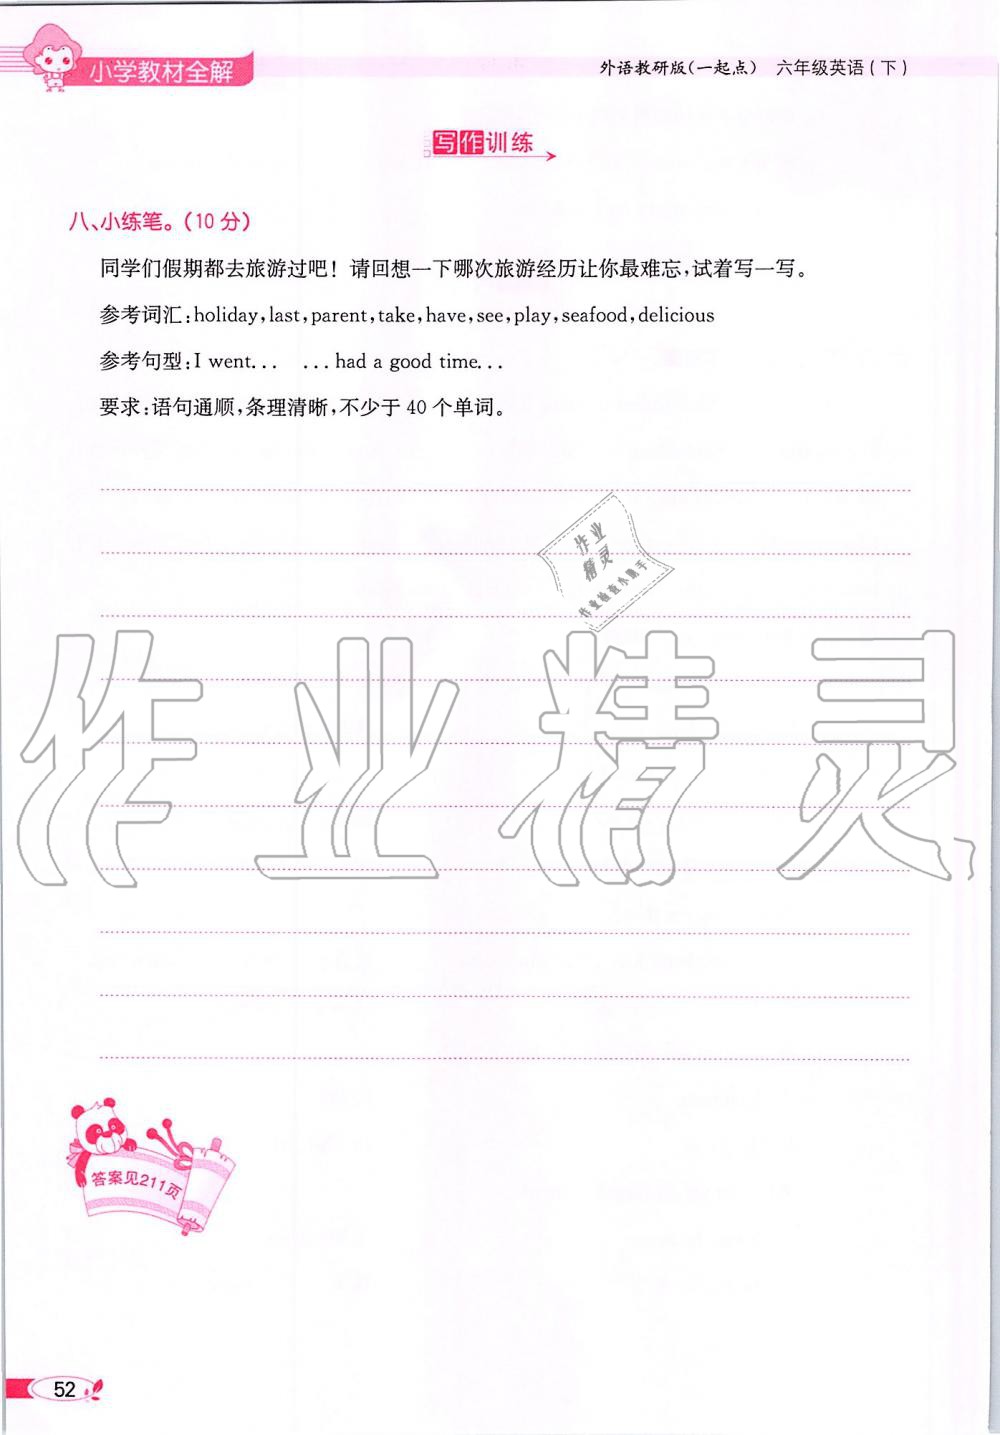 小学教材全解
外语教研版(一起点) 六年级英语(下)
写作训练
八、小练笔。(10分)
同学们假期都去旅游过吧!请回想一下哪次旅游经历让你最难忘,试着写一写。
参考词汇:holiday,last,parent,take,have,see,play,seafood,delicious
参考句型:I went... ...had a good time...
要求:语句通顺,条理清晰,不少于40个单词。
作业
精灵
作业检查小助手
作业精灵
答案见211页
52